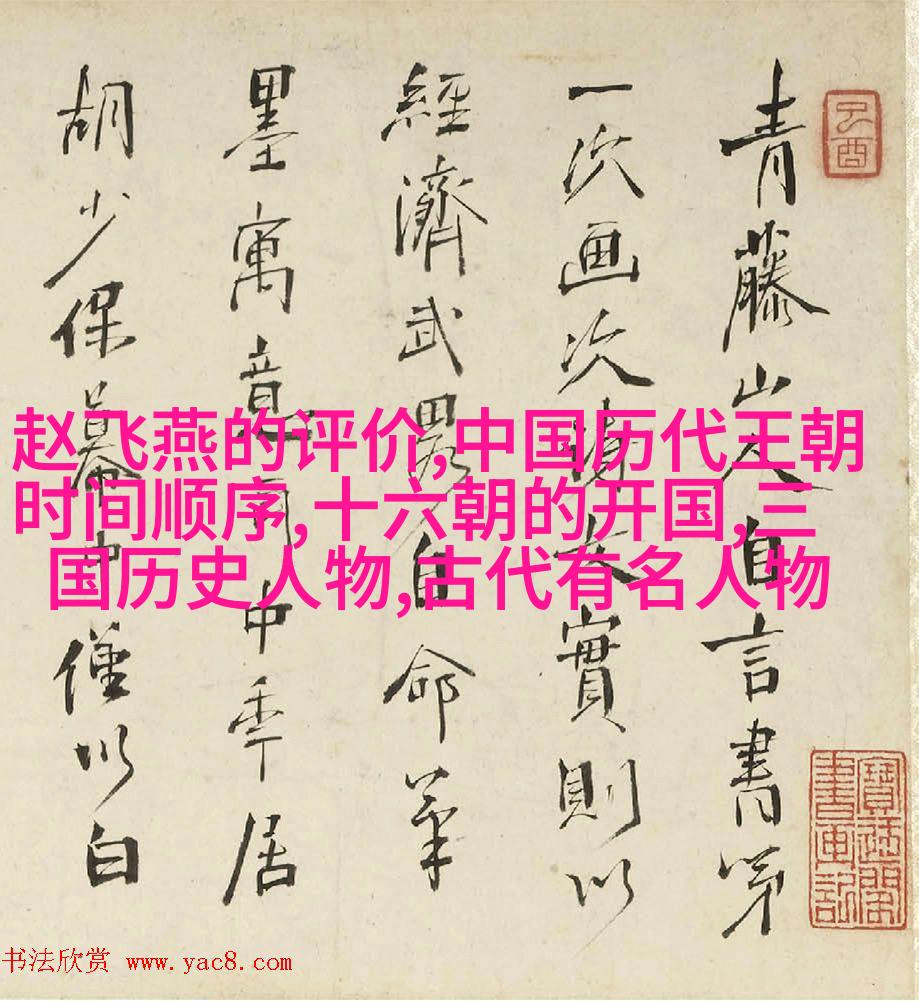 青藤山人自言書第
一次画次文實則以
經濟武畧自命筆
墨寓意耳中年居
胡少保幕中僅以白
赵飞燕的评价,中国历代王朝
时间顺序,十六朝的开国,三
国历史人物,古代有名人物
寶迂閣
書画記
书法欣赏 www.yac8.com